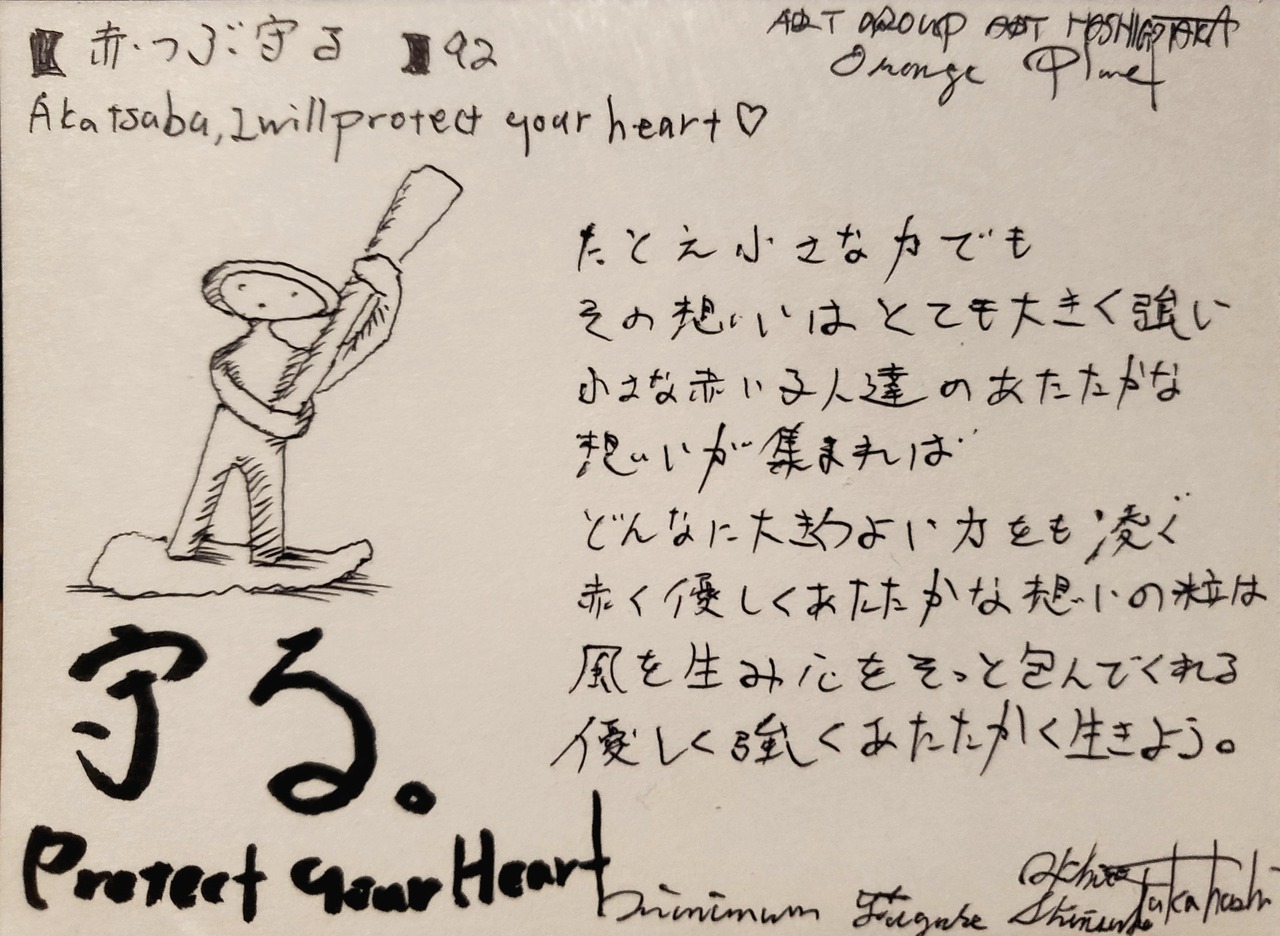 【赤つぶ守る】92
ART GROUP ART
Orange Planet
Akatsubu, I will protect your heart♡
たとえ小さな力でも
その想いはとても大きく強い
小さな赤い子人達のあたたかな
想いが集まれば
どんなに大きくつよい力をも凌ぐ
赤く優しくあたたかな想いの粒は
風を生み心をそっと包んでくれる
優しく強くあたたかく生きよう。
守る。
Protect your Heart
Takahashi